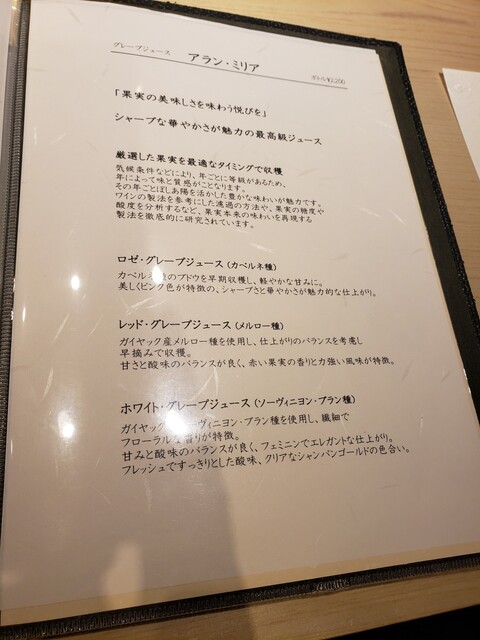 グレープジュース アラン・ミリア ボトル¥1,200
「果実の美味しさを味わう悦びを」
シャープな華やかさが魅力の最高級ジュース
厳選した果実を最適なタイミングで収穫
気候条件などにより、年ごとに等級があるため、
年によって味と質感がことなります。
その年ごとぼしあ陽を活かした豊かな味わいが魅力です。
ワインの製法を参考にした濾過の方法や、果実の糖度や
酸度を分析するなど、果実本来の味わいを再現する
製法を徹底的に研究されています。
ロゼ・グレープジュース (カベルネ種)
カベルネ種のブドウを早期収穫し、軽やかな甘みに。
美しくピンク色が特徴の、シャープさと華やかさが魅力的な仕上がり。
レッド・グレープジュース (メルロー種)
ガイヤック産メルロー種を使用し、仕上がりのバランスを考慮し
早摘みで収穫。
甘さと酸味のバランスが良く、赤い果実の香りと力強い風味が特徴。
ホワイト・グレープジュース (ソーヴィニヨン・ブラン種)
ガイヤック ヴィニヨン・ブラン種を使用し、繊細で
フローラルな香りが特徴。
甘みと酸味のバランスが良く、フェミニンでエレガントな仕上がり。
フレッシュですっきりとした酸味、クリアなシャンパンゴールドの色合い。